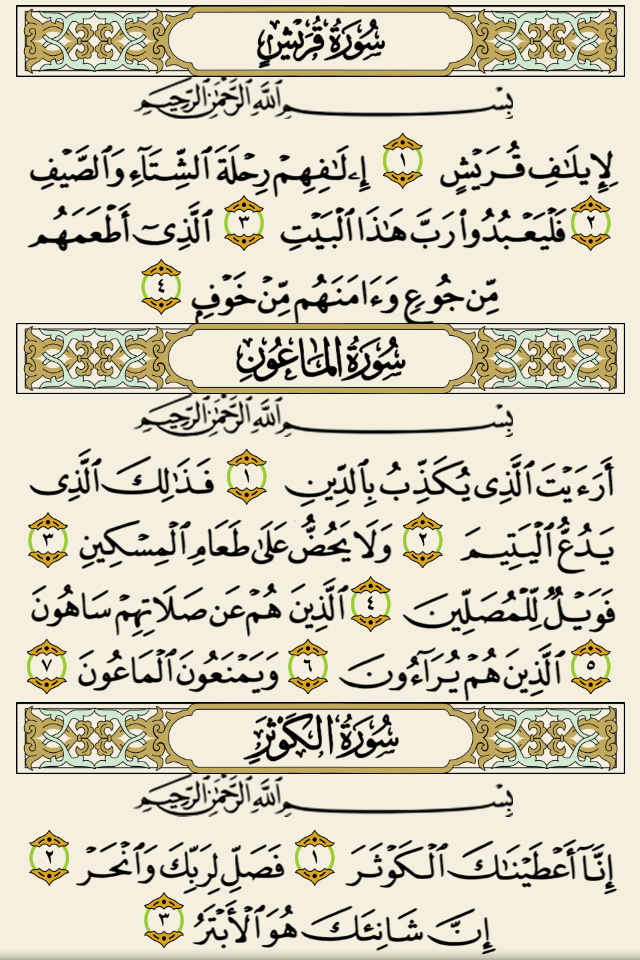 سُورَةُ قُرَيْشٍ
بِسْمِ اللَّهِ الرَّحْمَٰنِ الرَّحِيمِ
لِإِيلَٰفِ قُرَيْشٍ ١ إِۦلَٰفِهِمْ رِحْلَةَ ٱلشِّتَآءِ وَٱلصَّيْفِ
٢ فَلْيَعْبُدُوا۟ رَبَّ هَٰذَا ٱلْبَيْتِ ٣ ٱلَّذِىٓ أَطْعَمَهُم
مِّن جُوعٍ وَءَامَنَهُم مِّنْ خَوْفٍ ٤
سُورَةُ المَاعُونِ
بِسْمِ اللَّهِ الرَّحْمَٰنِ الرَّحِيمِ
أَرَءَيْتَ ٱلَّذِى يُكَذِّبُ بِٱلدِّينِ ١ فَذَٰلِكَ ٱلَّذِى
يَدُعُّ ٱلْيَتِيمَ ٢ وَلَا يَحُضُّ عَلَىٰ طَعَامِ ٱلْمِسْكِينِ ٣
فَوَيْلٌ لِّلْمُصَلِّينَ ٤ ٱلَّذِينَ هُمْ عَن صَلَاتِهِمْ سَاهُونَ
٥ ٱلَّذِينَ هُمْ يُرَآءُونَ ٦ وَيَمْنَعُونَ ٱلْمَاعُونَ ٧
سُورَةُ الكَوْثَرِ
بِسْمِ اللَّهِ الرَّحْمَٰنِ الرَّحِيمِ
إِنَّآ أَعْطَيْنَٰكَ ٱلْكَوْثَرَ ١ فَصَلِّ لِرَبِّكَ وَٱنْحَرْ ٢
إِنَّ شَانِئَكَ هُوَ ٱلْأَبْتَرُ ٣